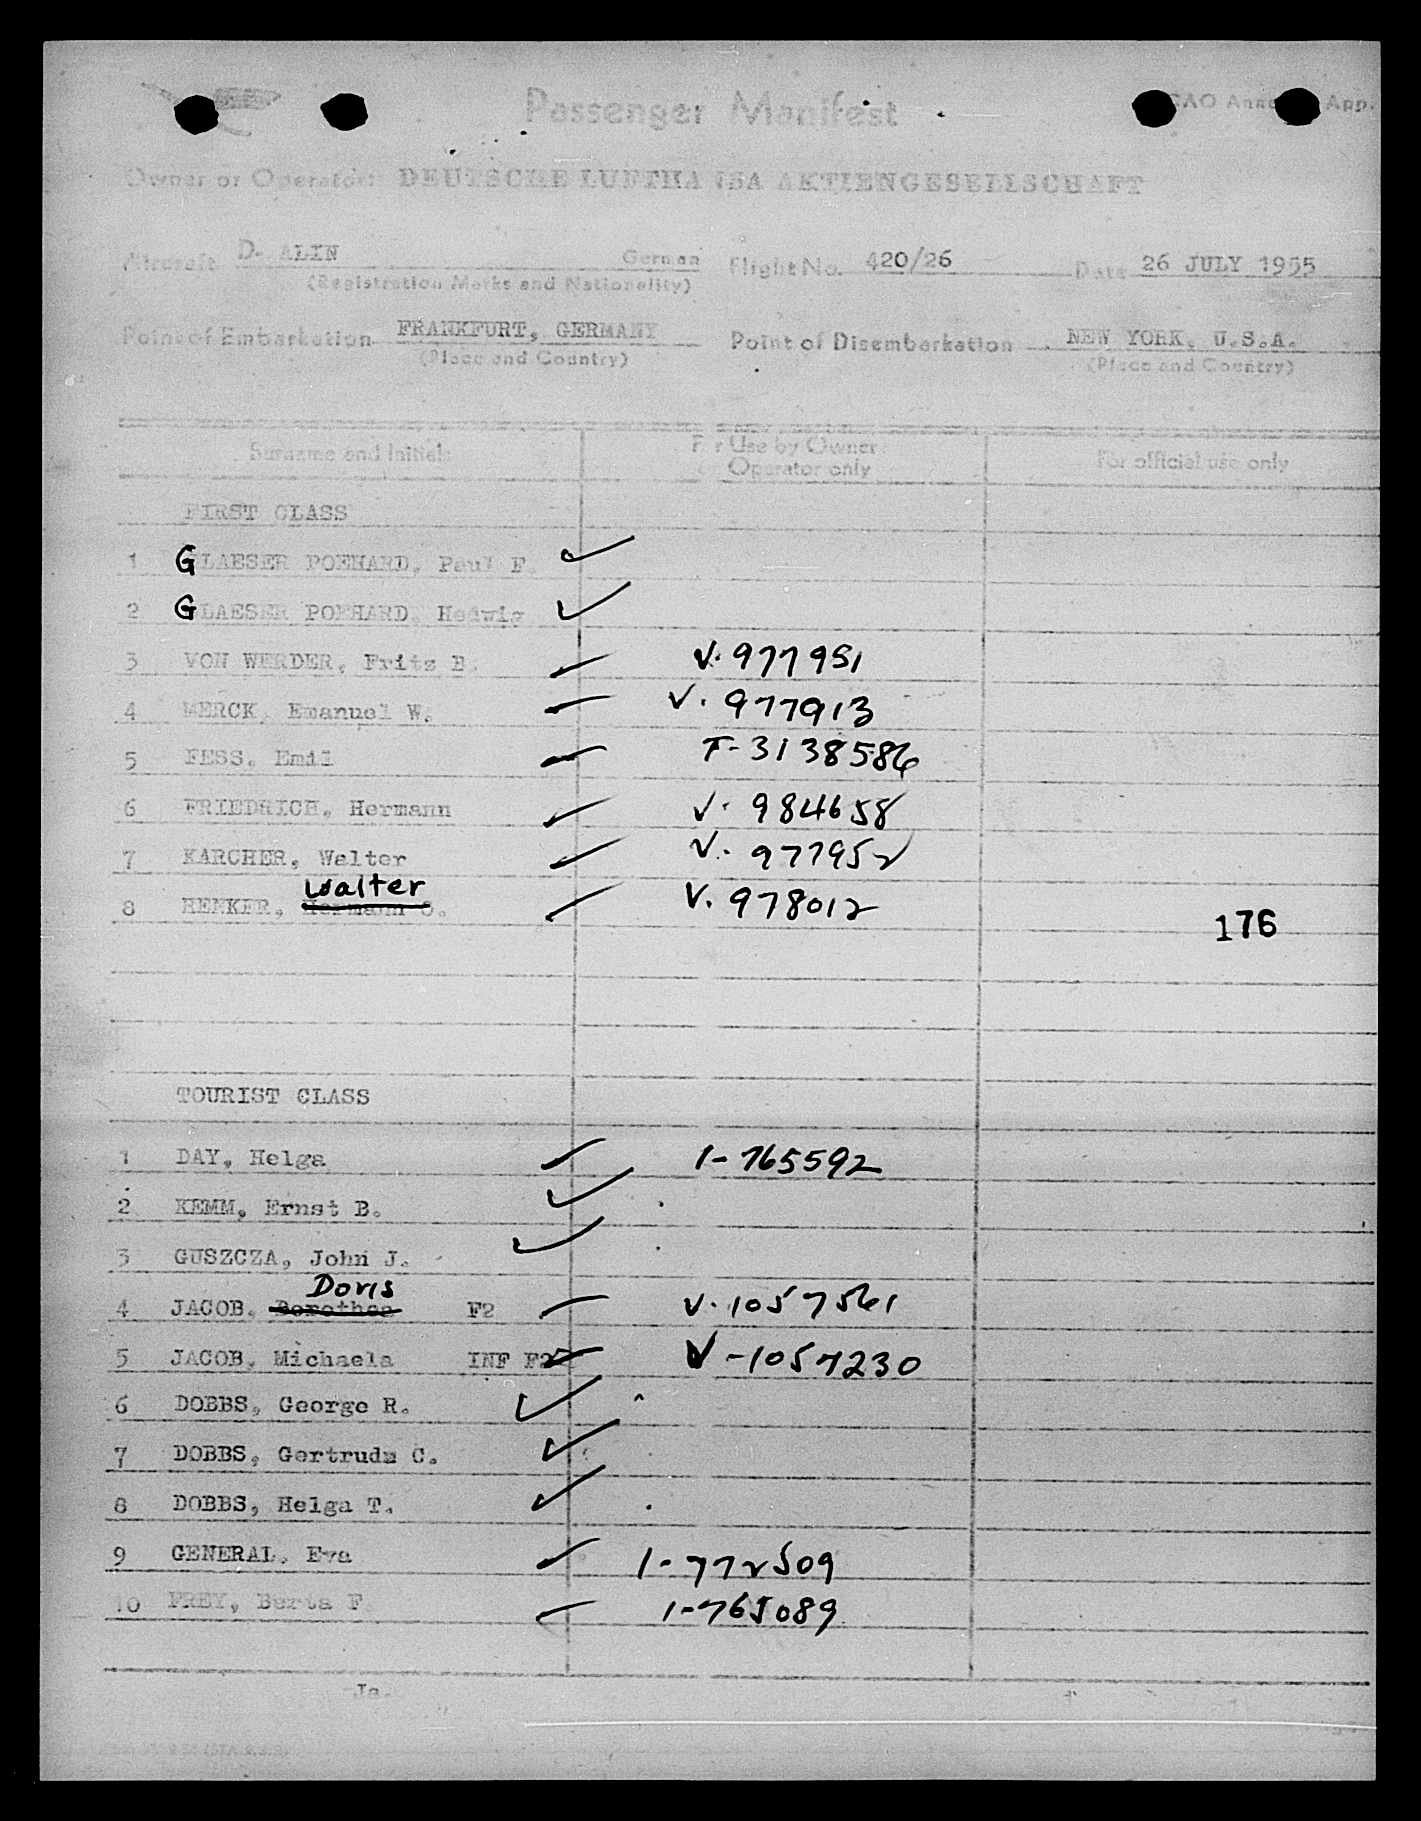 Passenger Manifest
ICAO Annex App.
Owner or Operator: DEUTSCHE LUFTHANSA AKTIENGESELLSCHAFT
Aircraft D- ALIN German Flight No. 420/26 Date 26 JULY 1955
(Registration Marks and Nationality)
Point of Embarkation FRANKFURT, GERMANY Point of Disembarkation NEW YORK, U.S.A.
(Place and Country) (Place and Country)
Surname and Initials For Use by Owner or Operator only For official use only
FIRST CLASS
1 GLAESER POEHARD, Paul F. ✓
2 GLAESER POEHARD, Hedwig ✓
3 VON WERDER, Fritz B. ✓ V. 977951
4 MERCK, Emanuel W. ✓ V. 977913
5 FESS, Emil ✓ T-3138586
6 FRIEDRICH, Hermann ✓ V. 984658
7 KARCHER, Walter ✓ V. 977952
Walter
8 HENKER, Hermann O. ✓ V. 978012
176
TOURIST CLASS
1 DAY, Helga ✓ 1-765592
2 KEMM, Ernst B. ✓
3 GUSZCZA, John J. ✓
Doris
4 JACOB, Dorothea F2 ✓ V. 1057561
5 JACOB, Michaela INF F2 ✓ V-1057230
6 DOBBS, George R. ✓
7 DOBBS, Gertrude C. ✓
8 DOBBS, Helga T. ✓
9 GENERAL, Eva ✓ 1-772509
10 FREY, Berta F. ✓ 1-765089
Ja.